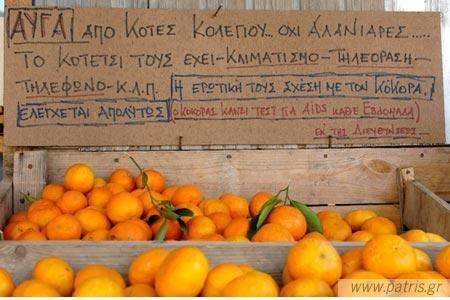 ΑΥΓΑ ΑΠΟ ΚΟΤΕΣ ΚΟΛΕΓΙΟΥ... ΟΧΙ ΑΛΑΝΙΑΡΕΣ.....
ΤΟ ΚΟΤΕΤΣΙ ΤΟΥΣ ΕΧΕΙ-ΚΛΙΜΑΤΙΣΜΟ-ΤΗΛΕΟΡΑΣΗ-
ΤΗΛΕΦΩΝΟ-Κ.Λ.Π. Η ΕΡΩΤΙΚΗ ΤΟΥΣ ΣΧΕΣΗ ΜΕ ΤΟΝ ΚΟΚΟΡΑ.
ΕΛΕΓΧΕΤΑΙ ΑΠΟΛΥΤΩΣ (Ο ΚΟΚΟΡΑΣ ΚΑΝΕΙ ΤΕΣΤ ΓΙΑ AIDS ΚΑΘΕ ΕΒΔΟΜΑΔΑ)
ΕΚ ΤΗΣ ΔΙΕΥΘΥΝΣΕΩΣ...
www.patris.gr